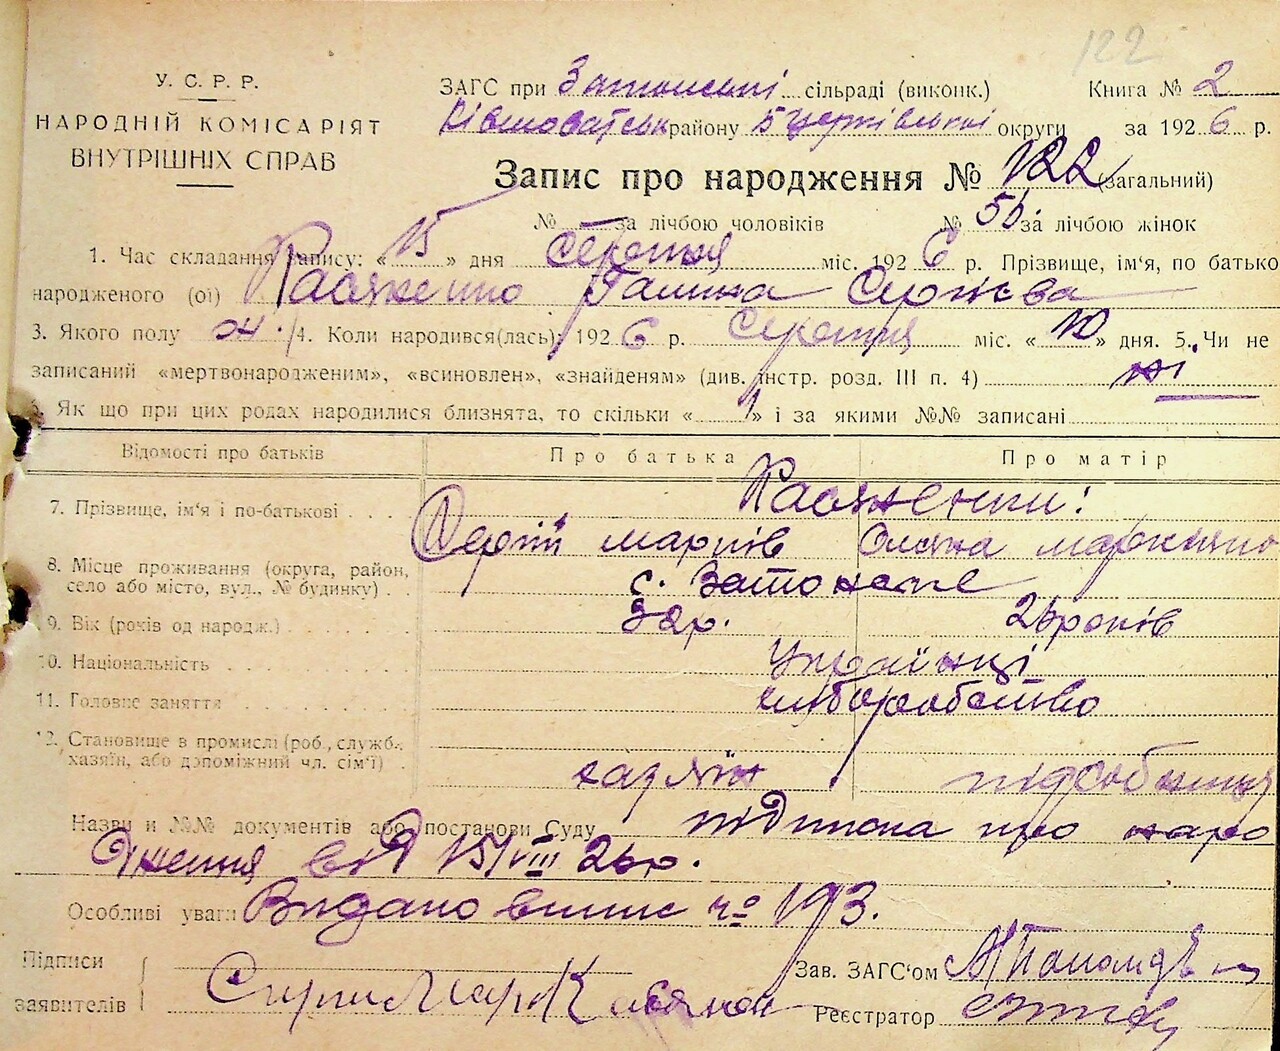 122
У. С. Р. Р.
НАРОДНІЙ КОМІСАРІЯТ
ВНУТРІШНІХ СПРАВ
ЗАГС при Затонські сільраді (виконк.) Книга № 2
району Б Церківські округи за 1926 р.
Запис про народження № 122 (загальний)
№ — за лічбою чоловіків № 56 за лічбою жінок
1. Час складання запису: « 15 » дня Серпня міс. 1926 р. Прізвище, ім'я, по батько
народженого (ої) Касяненко Галина Сергієва
3. Якого полу ж. 4. Коли народився(лась): 1926 р. Серпня міс. « 10 » дня. 5. Чи не
записаний «мертвонародженим», «всиновлен», «знайденям» (див. інстр. розд. III п. 4) ні
6. Як що при цих родах народилися близнята, то скільки « » і за якими №№ записані
Відомості про батьків Про батька Про матір
7. Прізвище, ім'я і по-батькові Касяненки:
Сергій Марків Оляна
8. Місце проживання (округа, район,
село або місто, вул., № будинку) с. Затонське
9. Вік (років од народж.) 32 р. 26 років
10. Національність Українці
11. Головне заняття хліборобство
12. Становище в промислі (роб., служб.,
хазяїн, або допоміжний чл. сім'ї) хазяїн підсобниця
Назви и №№ документів або постанови Суду підписка про наро
дження від 15/VIII 26 р.
Особливі уваги Видано випис № 193.
Підписи
заявителів
Зав. ЗАГС'ом
Реєстратор